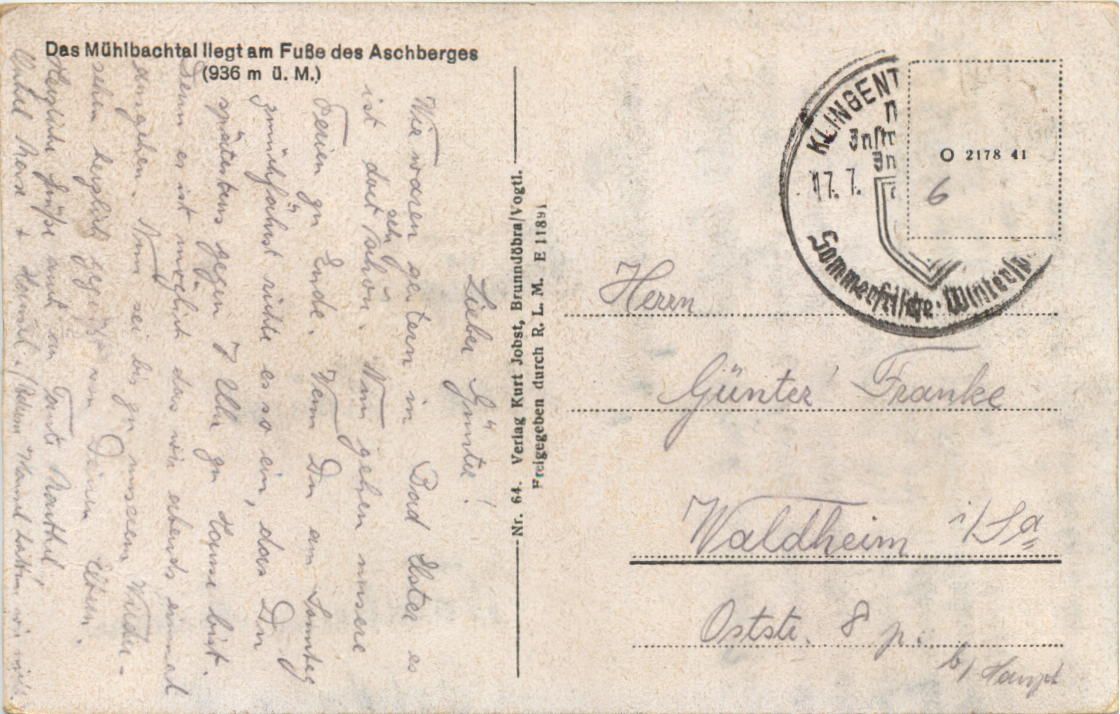 Das Mühlbachtal liegt am Fuße des Aschberges
(936 m ü. M.)
Lieber Günter!
Wie waren gestern in Bad Elster es
ist dort sehr schön. Nun gehen unsere
Ferien zu Ende. Wenn Du am Sonntag
zurückfährst richte es so ein, das Du
spätestens gegen 7 Uhr zu Hause bist.
Denn es ist möglich das wir abends einmal
ausgehen. Nun sei bis zu unserem Wieder-
sehen herzlich von Deinen Eltern.
Herzliche Grüße auch an Tante
Onkel &
Nr. 64. Verlag Kurt Jobst, Brunndöbra/Vogtl.
Freigegeben durch R. L. M. E 11891
KLINGENT
Instr
In
17. 7.
Sommerfrische · Wintersp
O 2178 41
6
Herrn
Günter Franke
Waldheim i/Sa
Oststr. 8 p.
b/ Haupt